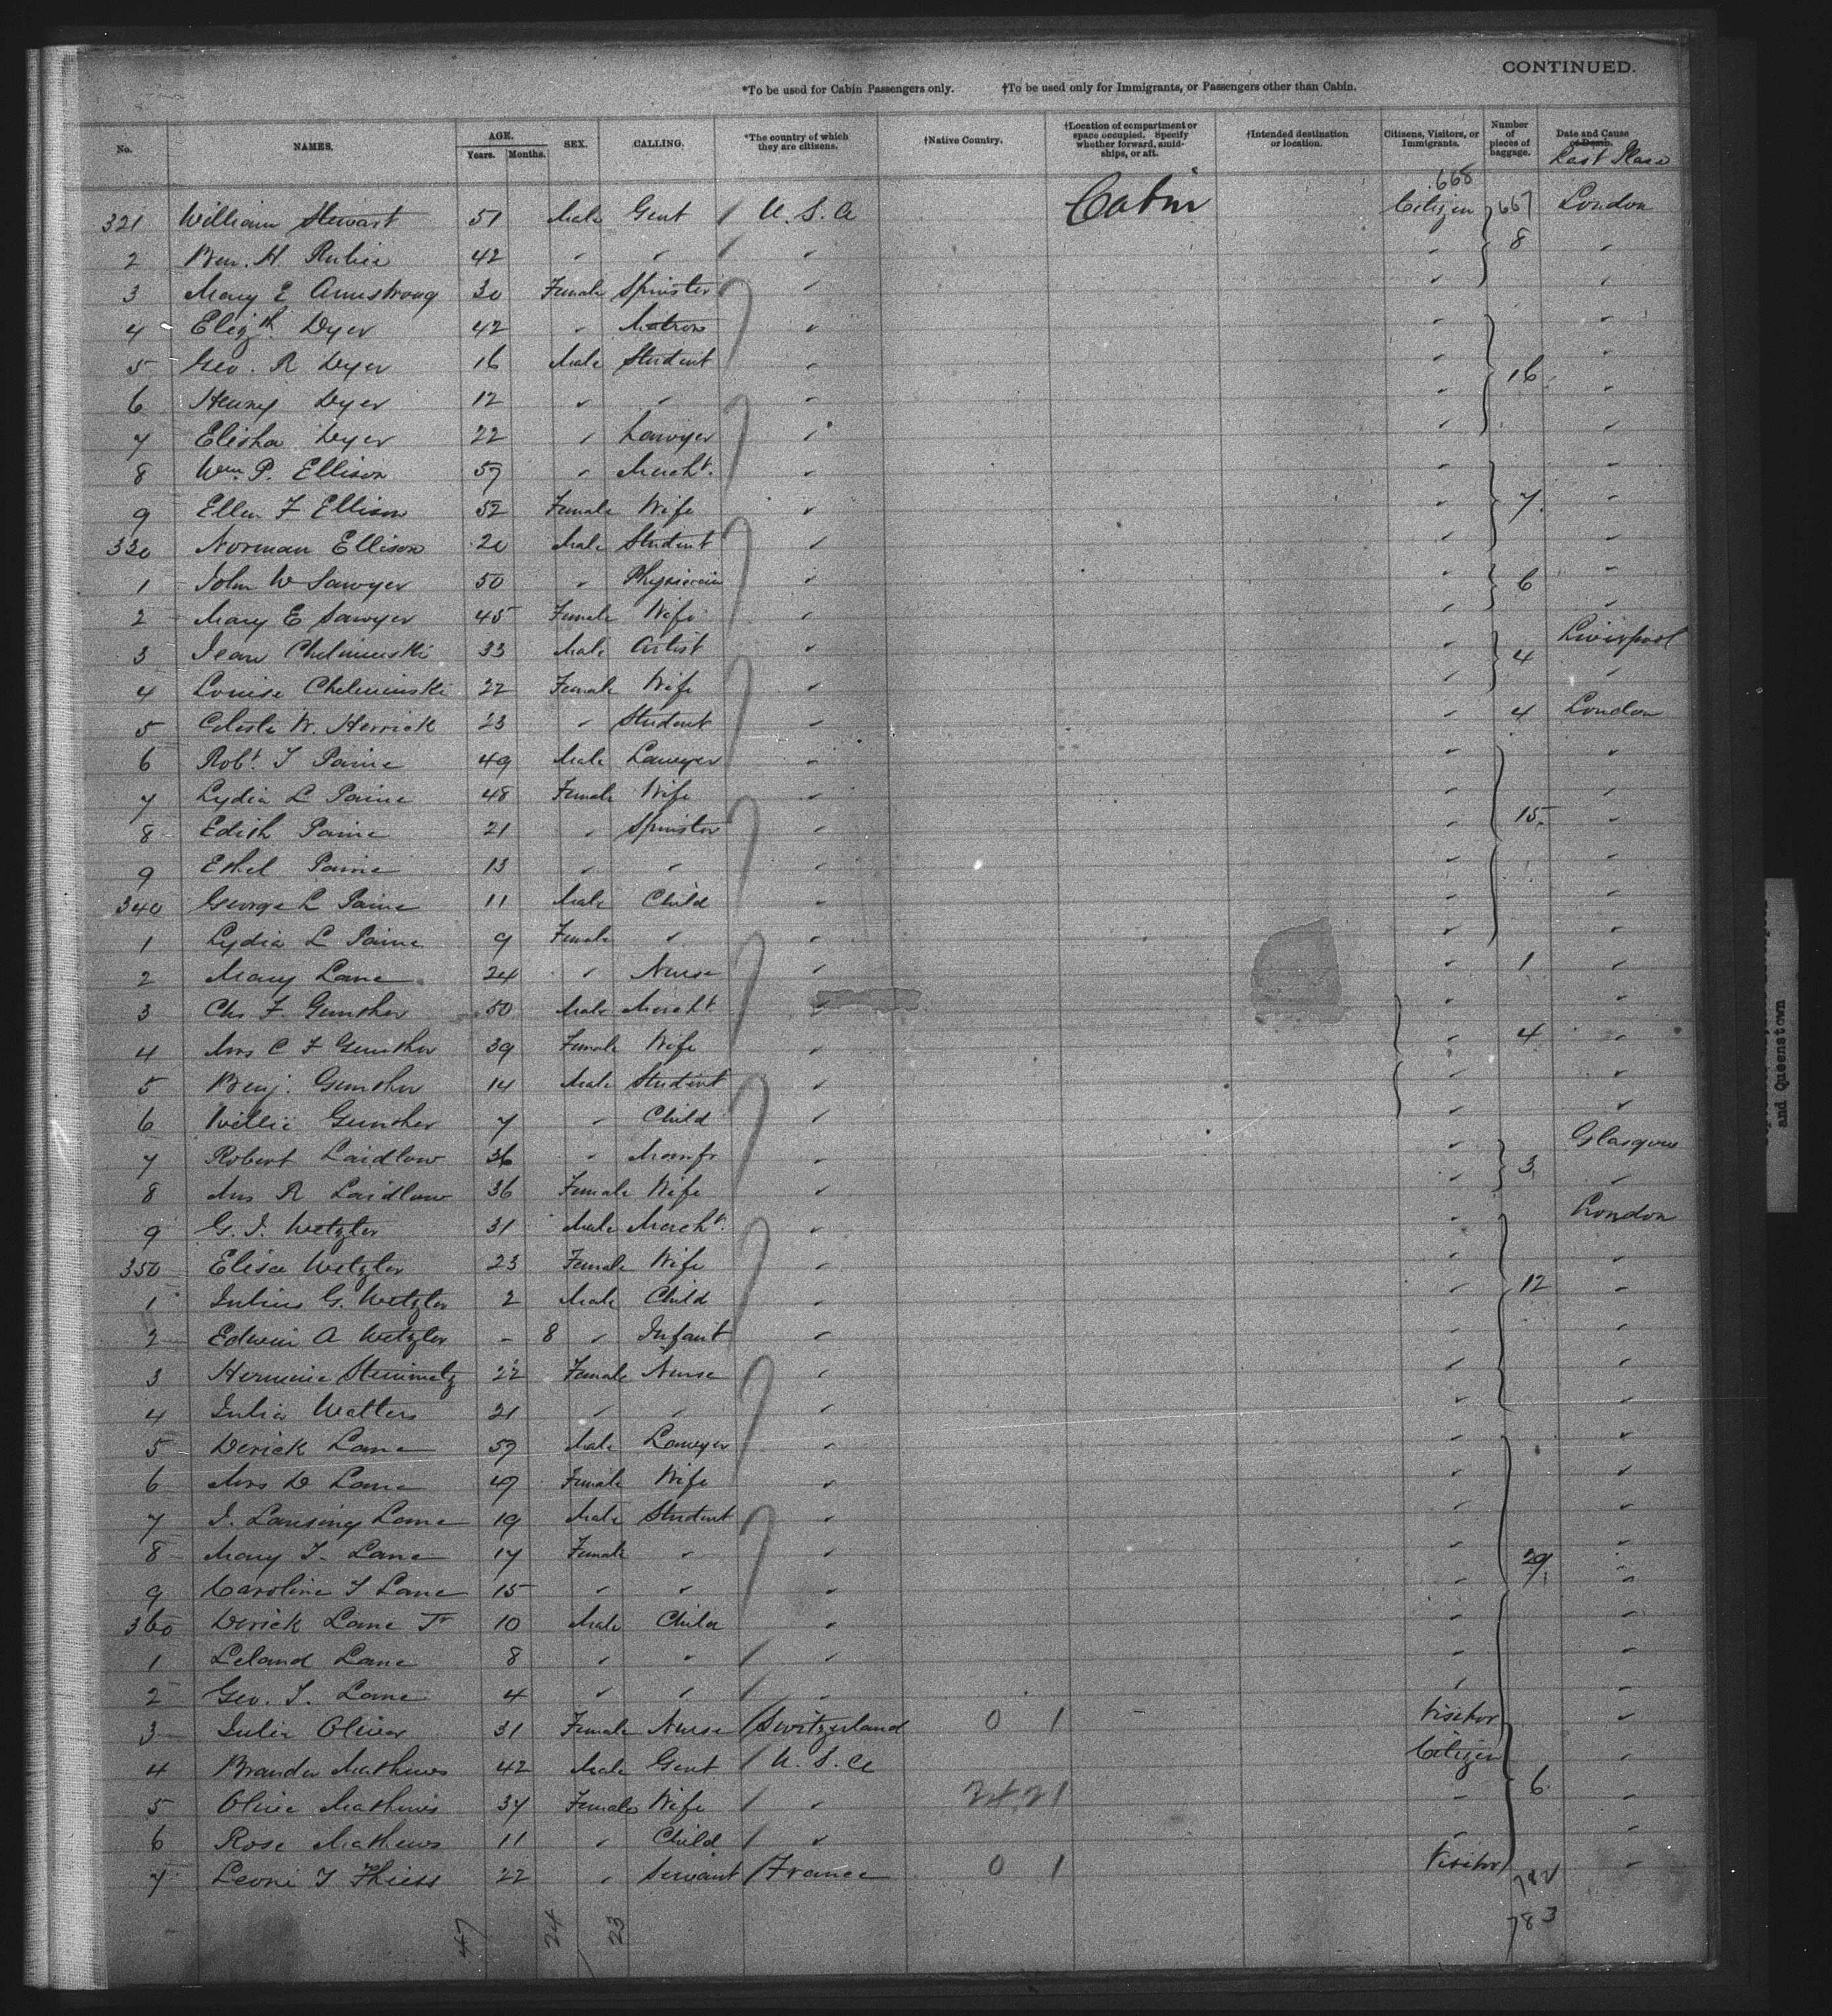 CONTINUED.
*To be used for Cabin Passengers only. †To be used only for Immigrants, or Passengers other than Cabin.
No. NAMES. AGE. Years. Months. SEX. CALLING. *The country of which they are citizens. †Native Country. †Location of compartment or space occupied. Specify whether forward, amid-ships, or aft. †Intended destination or location. Citizens, Visitors, or Immigrants. Number of pieces of baggage. Date and Cause of Death. Last Place
668
321 William Stewart 51 Male Gent / U. S. A Cabin Citizen 667 London
2 Ben. H. 42 " " / " " 8 "
3 Mary E Armstrong 30 Female Spinster " " "
4 Elizth. Dyer 42 " Matron " " "
5 Geo. R Dyer 16 Male Student " " 16 "
6 Henry Dyer 12 " " " " "
7 Elisha Dyer 22 " Lawyer " " "
8 Wm. P. Ellison 57 " Mercht. " " "
9 Ellen F Ellison 52 Female Wife " " 7. "
330 Norman Ellison 20 Male Student " " "
1 John W Sawyer 50 " Physician " " 6 "
2 Mary E Sawyer 45 Female Wife " " "
3 Jean Chelminski 33 Male Artist " " 4 Liverpool
4 Louise Chelminski 22 Female Wife " " "
5 Celeste W. Herrick 23 " Student " " 4 London
6 Robt. T Paine 49 Male Lawyer " " "
7 Lydia L Paine 48 Female Wife " " "
8 Edith Paine 21 " Spinster " " 15. "
9 Ethel Paine 13 " " " " "
340 George L Paine 11 Male Child " " "
1 Lydia L Paine 9 Female " " " "
2 Mary Lane 24 " Nurse " " 1 "
3 Chs F. Gunther 50 Male Mercht " " "
4 Mrs C F Gunther 39 Female Wife " " 4 "
5 Benj. Gunther 14 Male Student " " "
6 Willie Gunther 7 " Child " " "
7 Robert Laidlow 36 " Manfr " " 3 Glasgow
8 Mrs R Laidlow 36 Female Wife " " "
9 G. J. Wetzler 31 Male Mercht. " " London
350 Elisa Wetzler 23 Female Wife " " "
1 Julius G. Wetzler 2 Male Child " " 12 "
2 Edwin A Wetzler - 8 " Infant " " "
3 Hermine Steinmetz 22 Female Nurse " " "
4 Julia Watters 21 " " " " "
5 Derick Lane 57 Male Lawyer " " "
6 Mrs D Lane 47 Female Wife " " "
7 J. Lansing Lane 19 Male Student " " "
8 Mary T. Lane 17 Female " " " 29. "
9 Caroline T Lane 15 " " " " "
360 Derick Lane Jr 10 Male Child " " "
1 Leland Lane 8 " " / " " "
2 Geo. T. Lane 4 " " / " " "
3 Julia Oliver 31 Female Nurse / Switzerland 0 1 Visitor "
4 Brander Mathews 42 Male Gent / U. S. A Citizen "
5 Olive Mathews 37 Female Wife / " 24.21 " 6 "
6 Rose Mathews 11 " Child / " " "
7 Leonie T Thiess 22 " Servant / France 0 1 Visitor "
782
783
47 24 23
and Queenstown